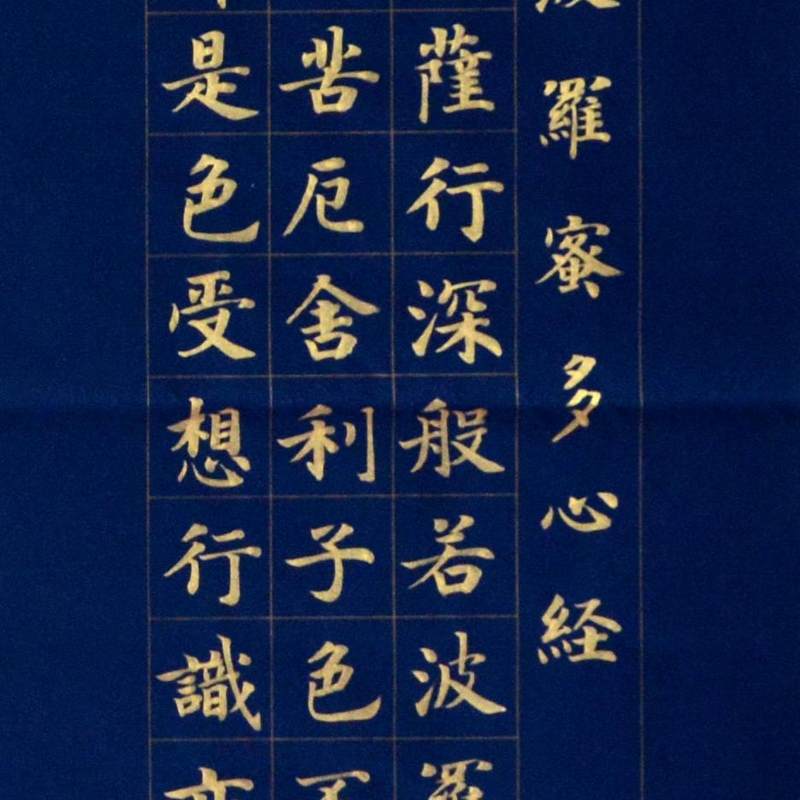 波羅蜜多心経
薩行深般若波羅
苦厄舍利子色不
是色受想行識亦